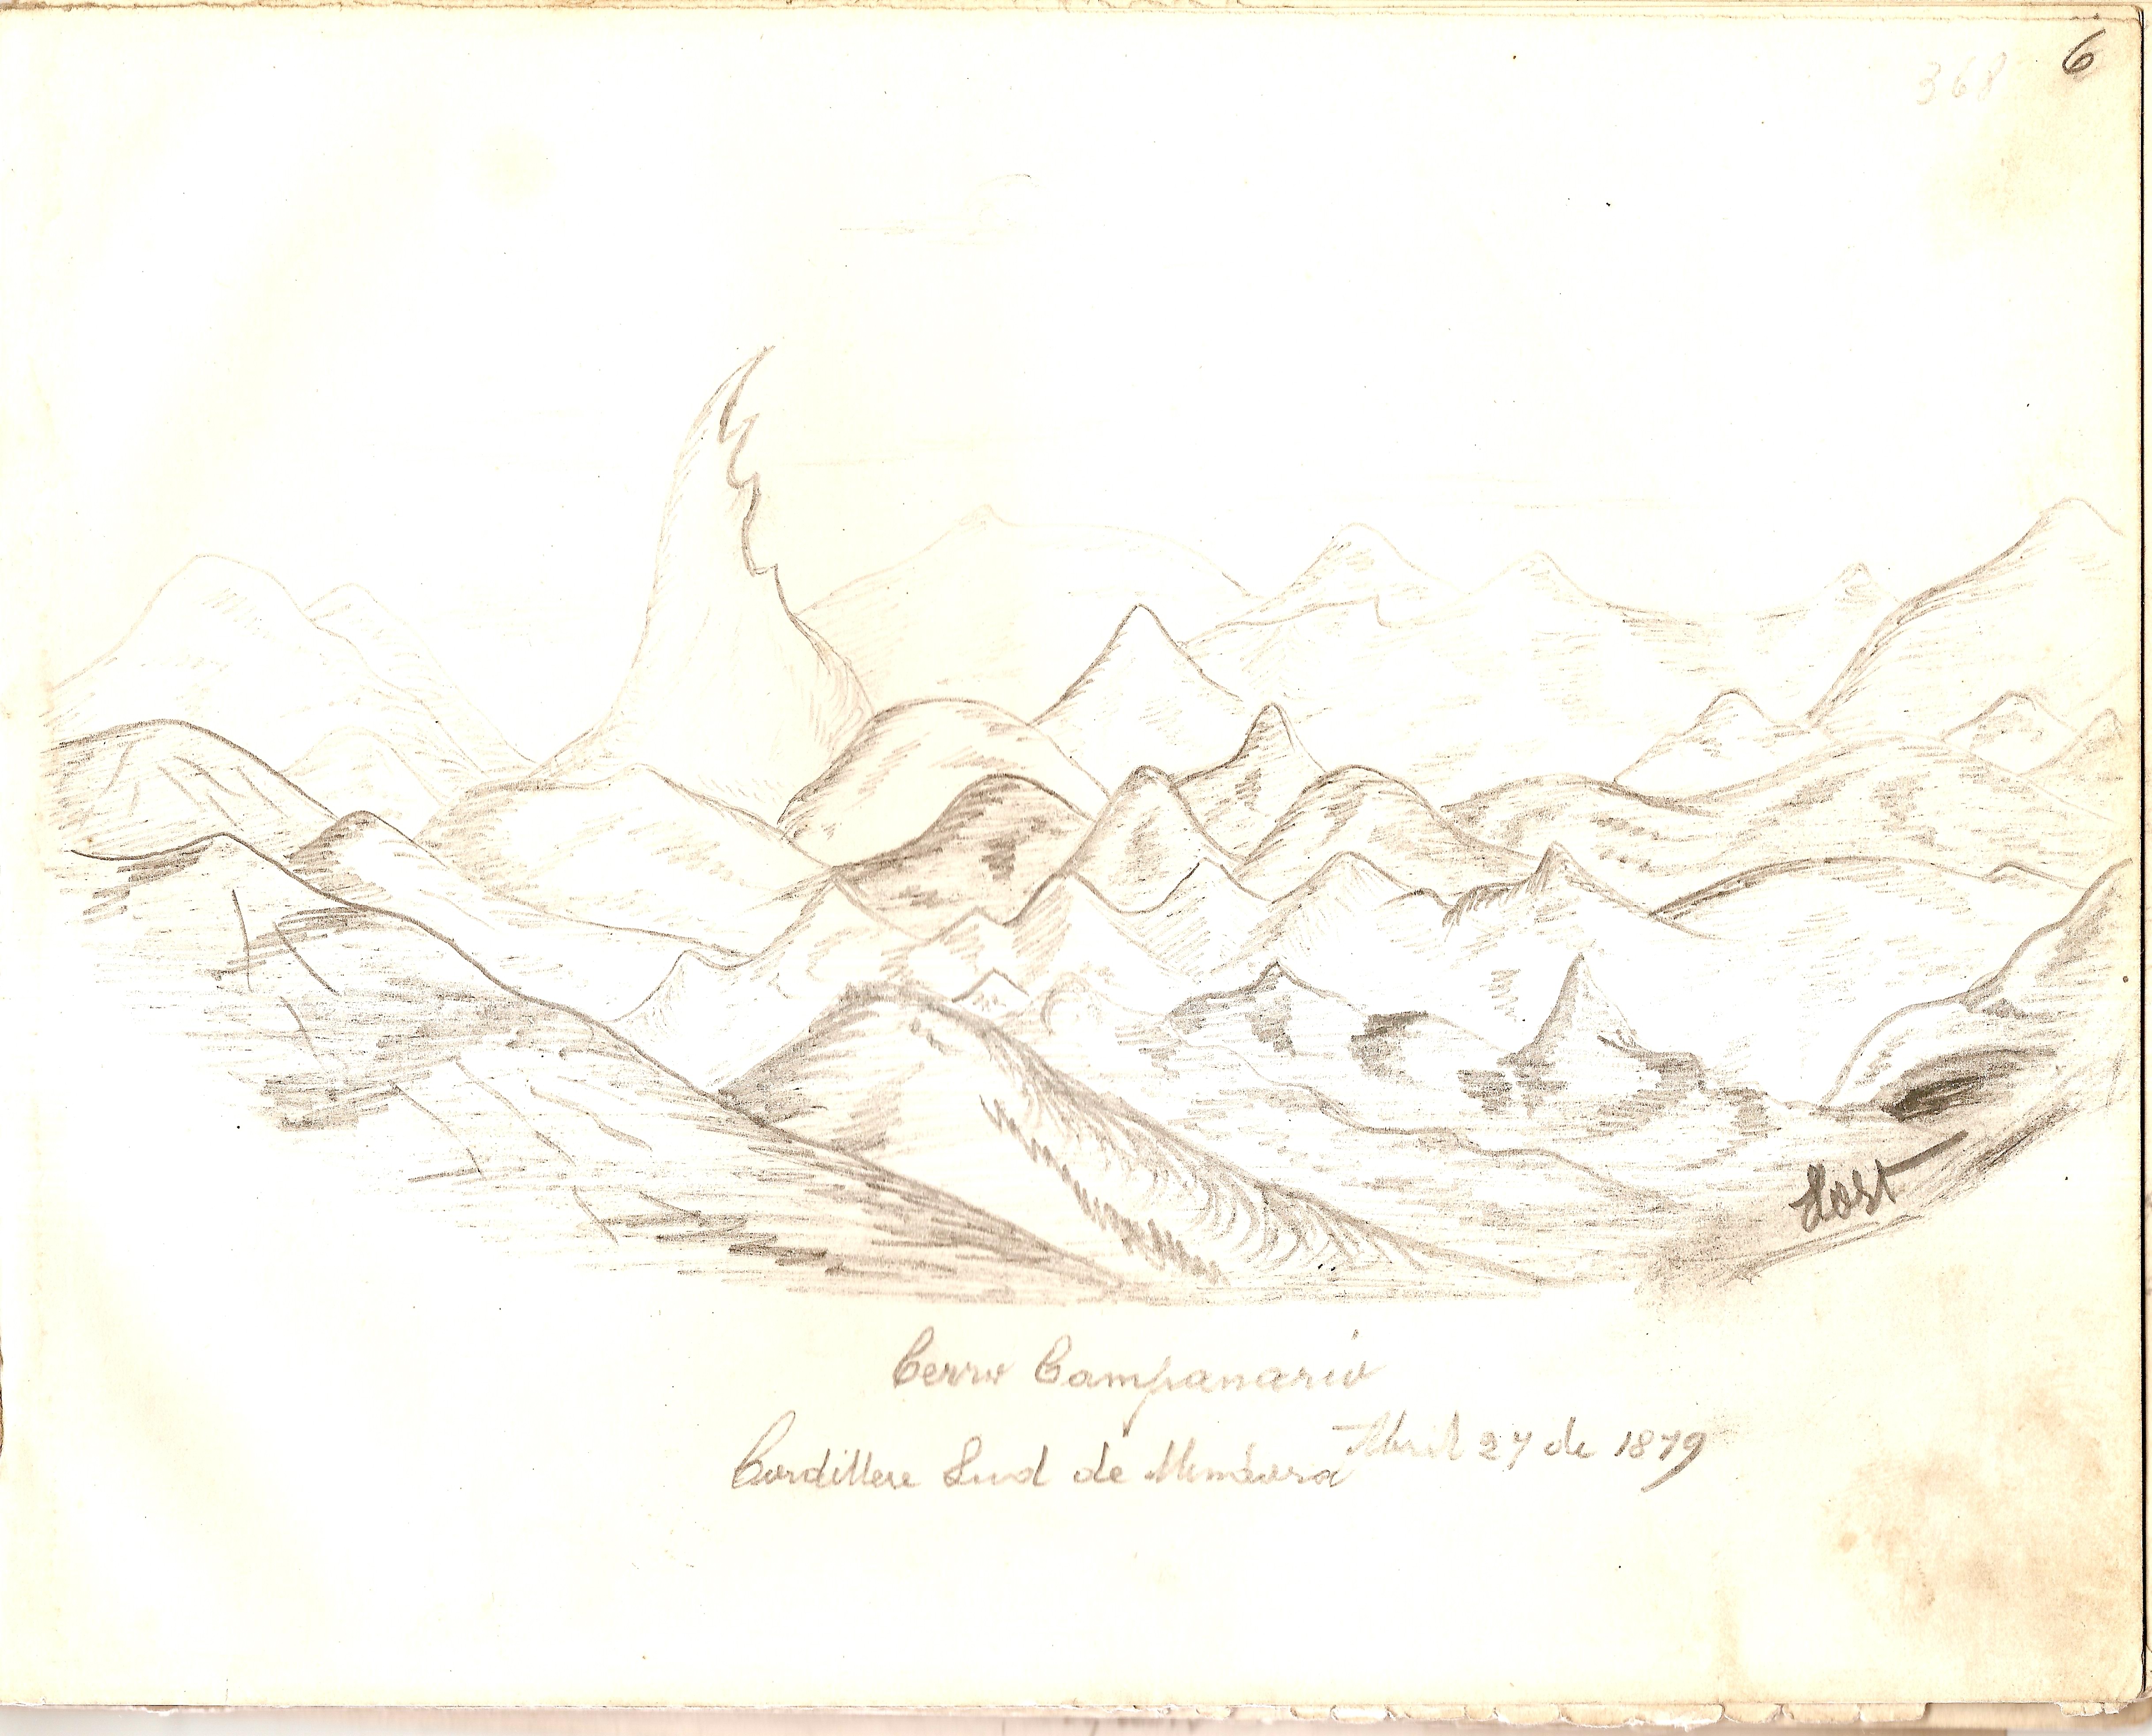 6
368
Host
Cerro Campanario
Cordillere Sud de Mendoza Abril 27 de 1879